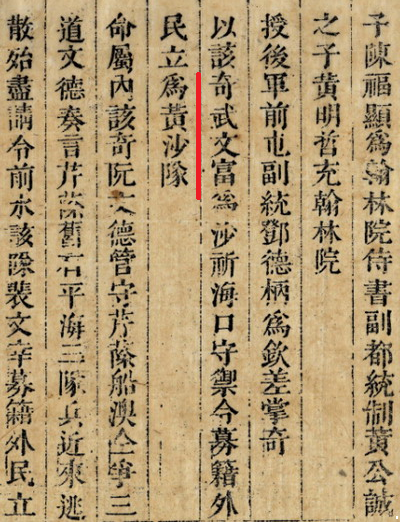 子陳福顯爲翰林院侍書副都統制黃公誠
之子黃明哲充翰林院
授後軍前屯副統鄧德柄爲欽差掌奇
以該奇武文富爲沙祈海口守禦令募籍外
民立爲黃沙隊
命屬內該奇阮文德管守芹蒢船澳仝寧三
道文德奏言芹蒢舊右平海三隊兵近來逃
散始盡請令前水該隊裴文幸募籍外民立